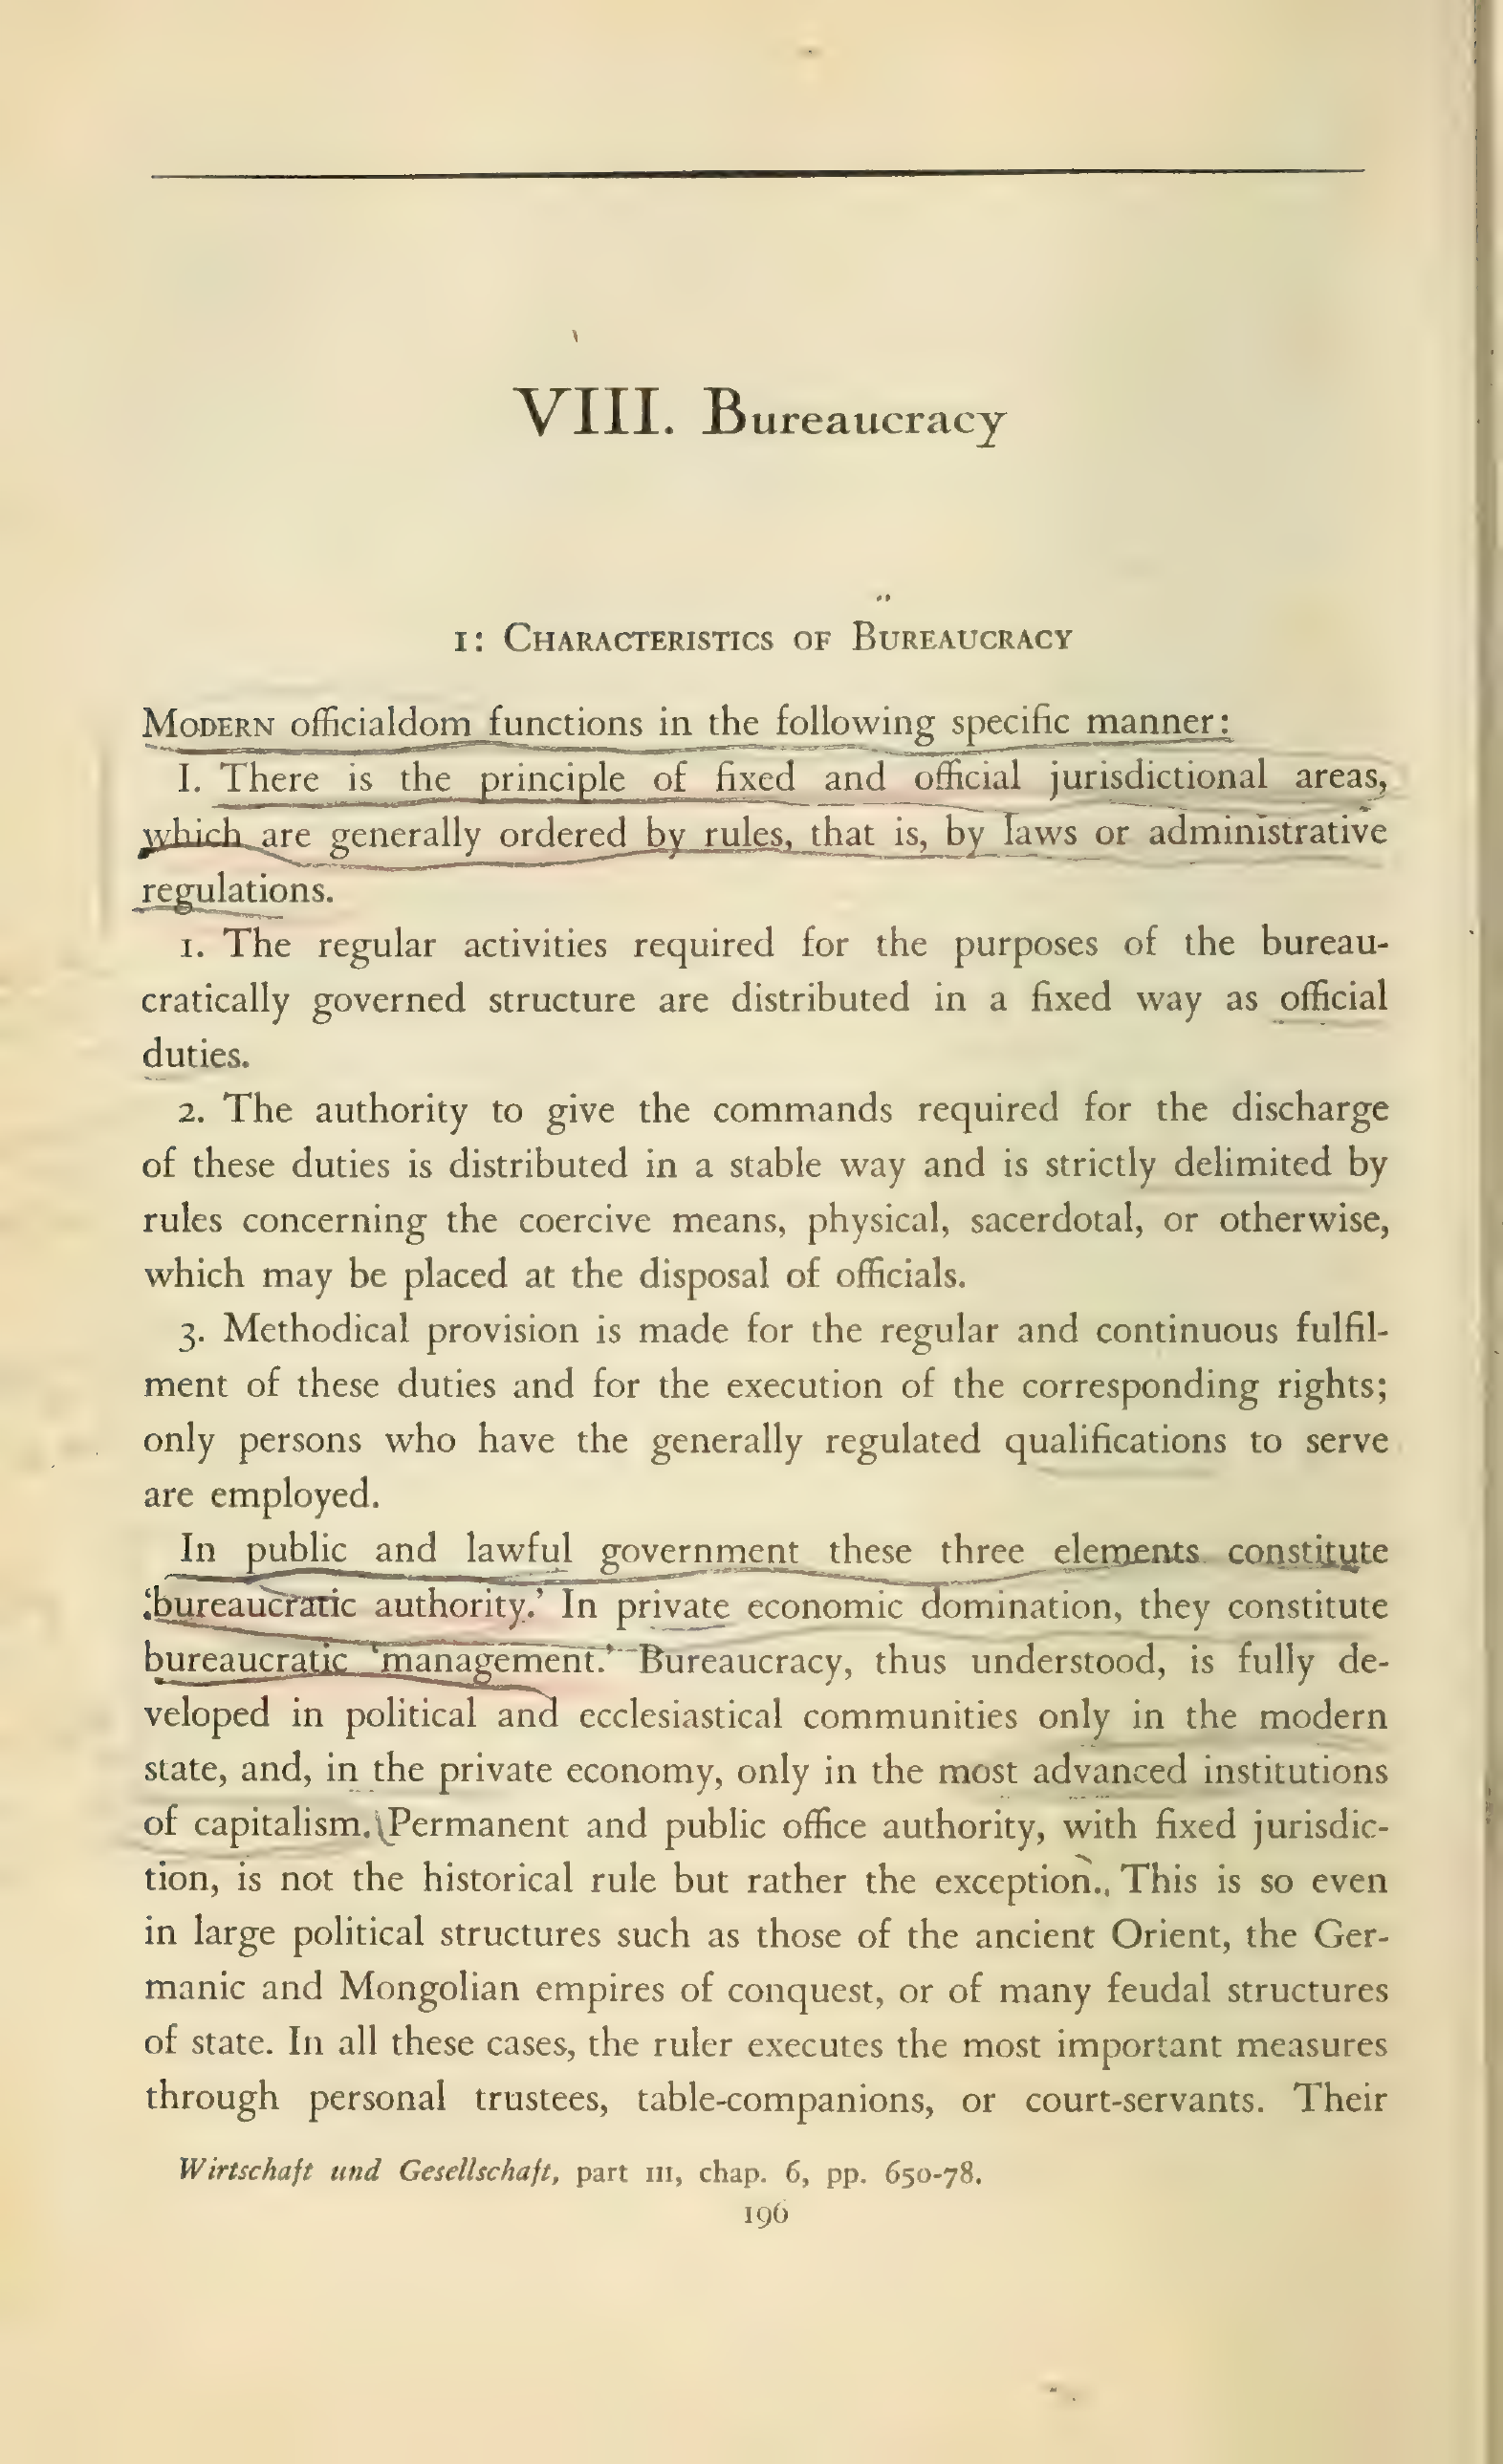 VIII. Bureaucracy
1: Characteristics of Bureaucracy
Modern officialdom functions in the following specific manner:
I. There is the principle of fixed and official jurisdictional areas,
which are generally ordered by rules, that is, by laws or administrative
regulations.
1. The regular activities required for the purposes of the bureau-
cratically governed structure are distributed in a fixed way as official
duties.
2. The authority to give the commands required for the discharge
of these duties is distributed in a stable way and is strictly delimited by
rules concerning the coercive means, physical, sacerdotal, or otherwise,
which may be placed at the disposal of officials.
3. Methodical provision is made for the regular and continuous fulfil-
ment of these duties and for the execution of the corresponding rights;
only persons who have the generally regulated qualifications to serve
are employed.
In public and lawful government these three elements constitute
'bureaucratic authority.' In private economic domination, they constitute
bureaucratic 'management.' Bureaucracy, thus understood, is fully de-
veloped in political and ecclesiastical communities only in the modern
state, and, in the private economy, only in the most advanced institutions
of capitalism. Permanent and public office authority, with fixed jurisdic-
tion, is not the historical rule but rather the exception. This is so even
in large political structures such as those of the ancient Orient, the Ger-
manic and Mongolian empires of conquest, or of many feudal structures
of state. In all these cases, the ruler executes the most important measures
through personal trustees, table-companions, or court-servants. Their
Wirtschaft und Gesellschaft, part III, chap. 6, pp. 650-78.
196